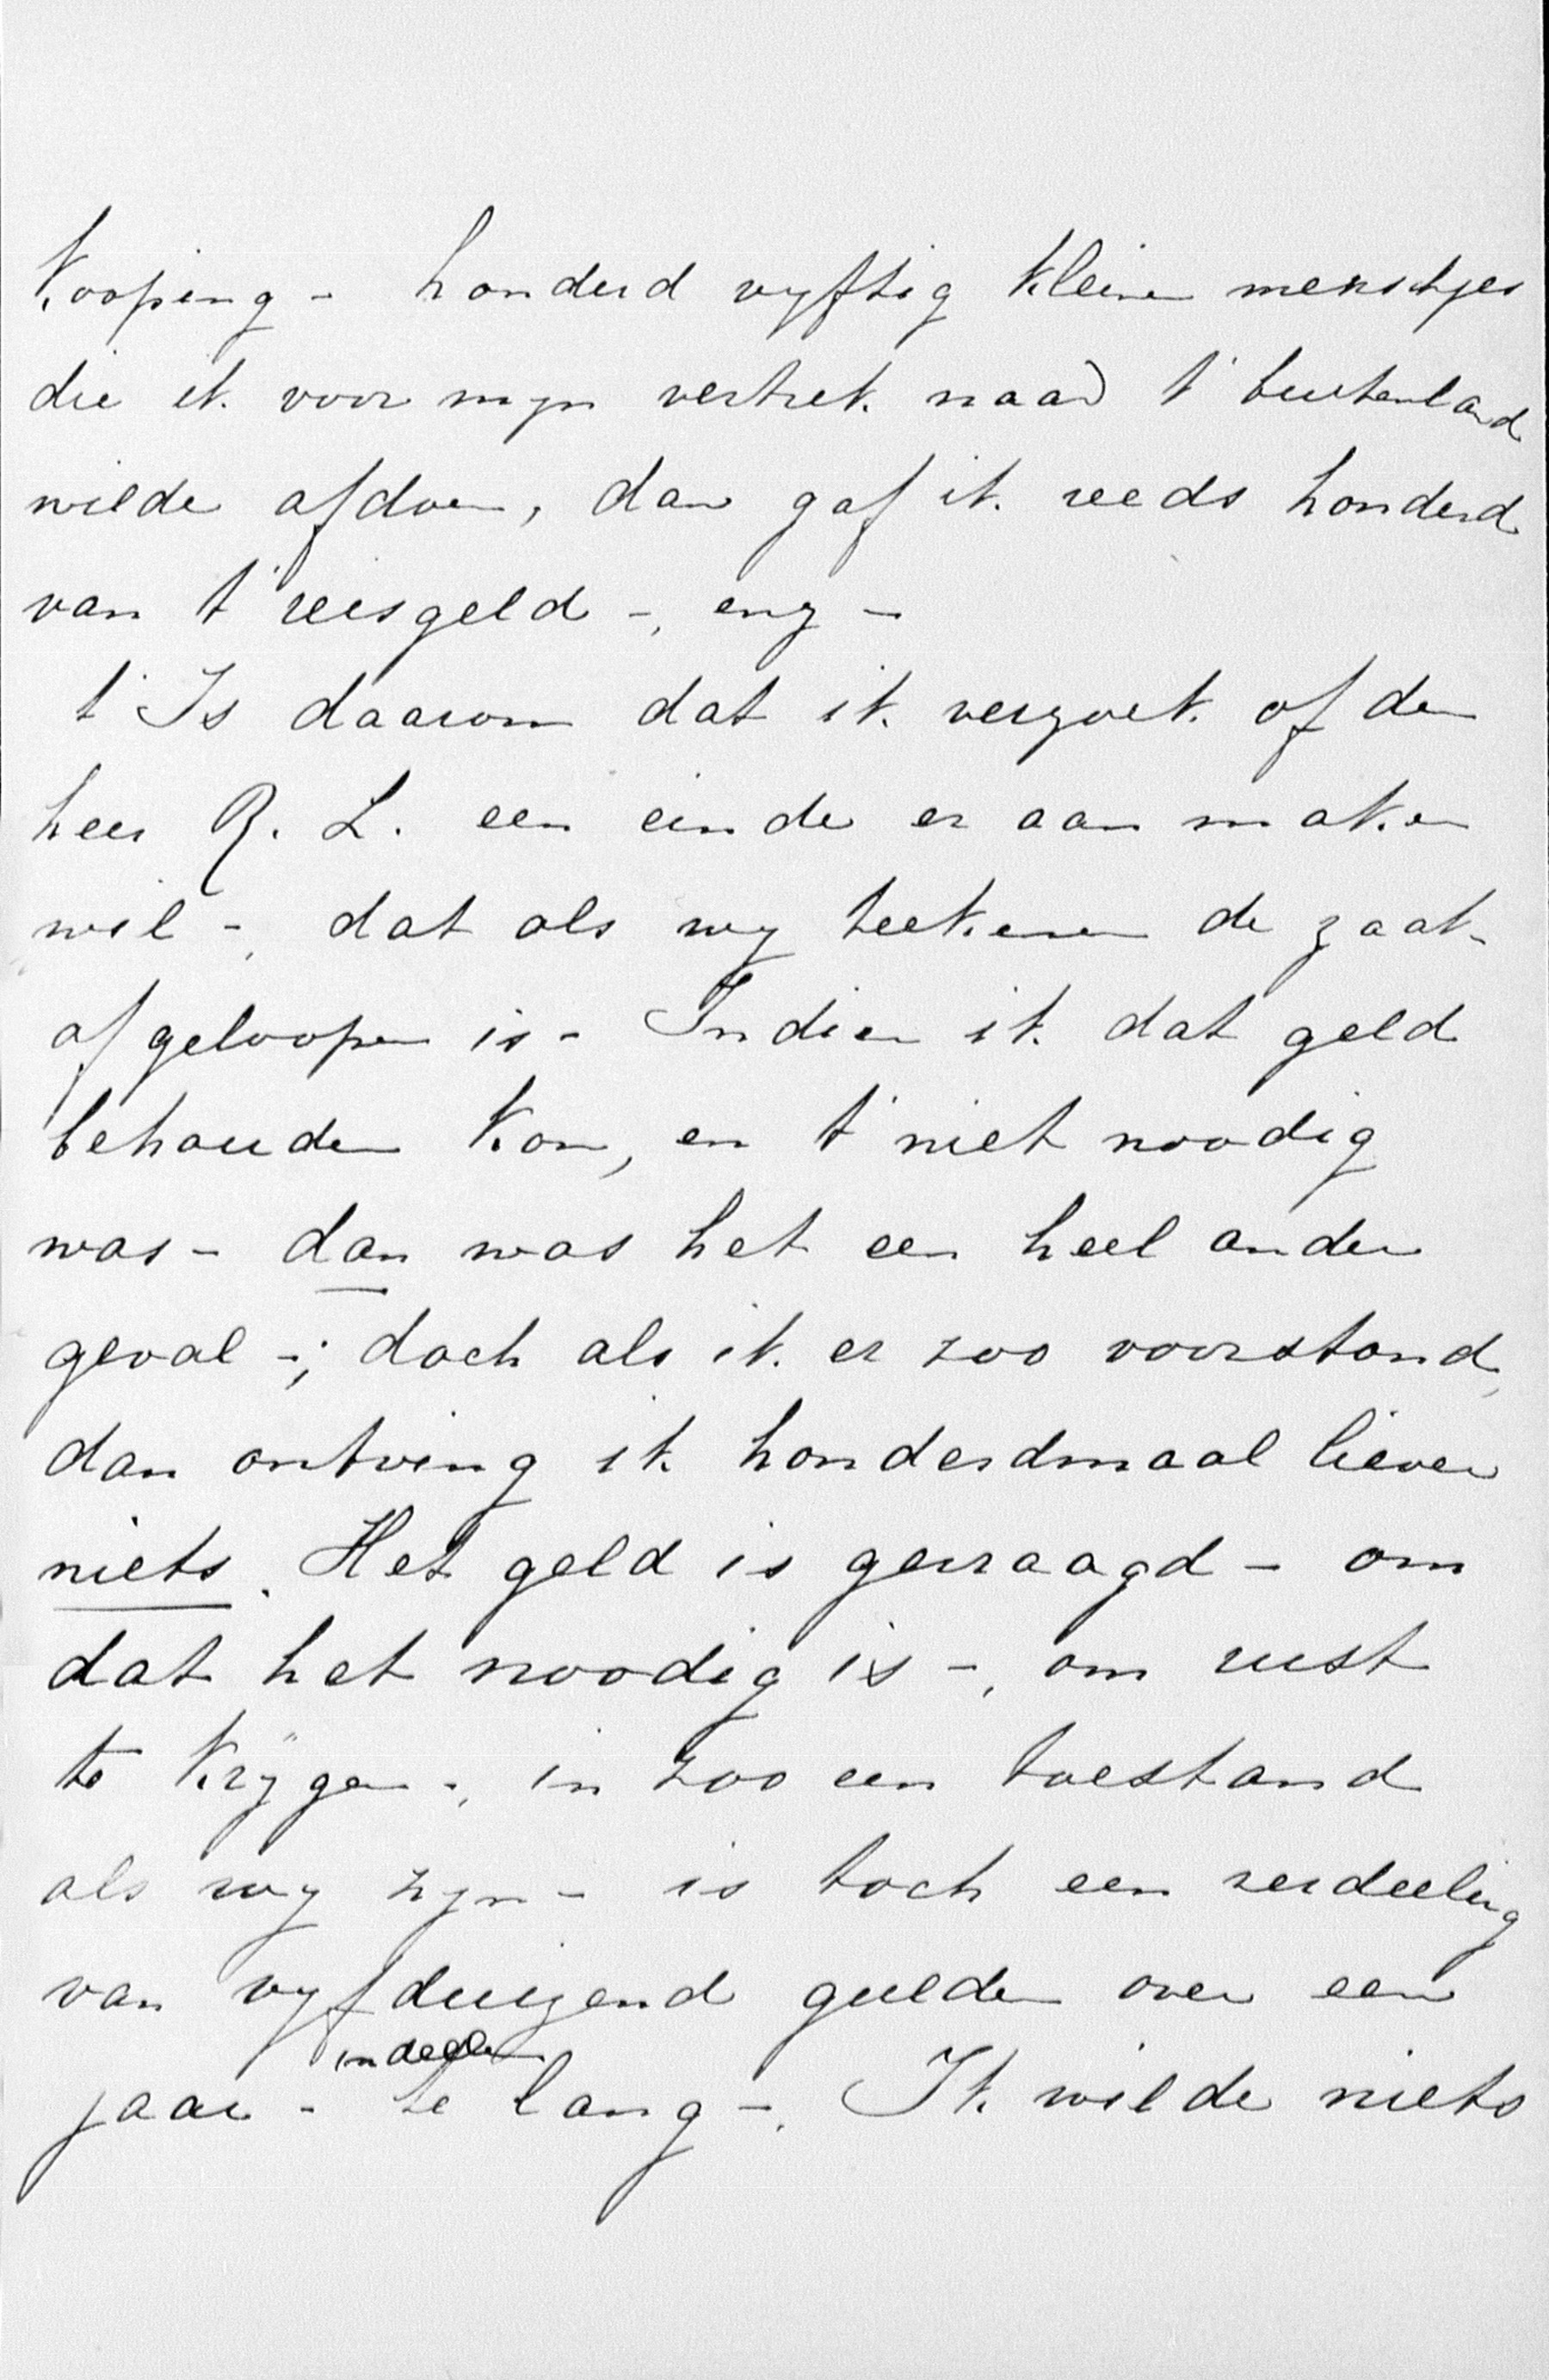 Kooping - honderd vyftig kleine menschjes
die ik voor myn vertrek naar t' buitenland
wilde afdoen, dan gaf ik reeds honderd
van t' reisgeld -, enz -
t' Is daarom dat ik verzoek of de
heer R. L. een einde er aan maken
wil -, dat als wy teekenen de zaak
afgeloopen is - Indien ik dat geld
behouden kon, en t' niet noodig
was - dan was het een heel ander
geval -; doch als ik er zoo voorstond,
dan ontving ik honderdmaal liever
niets. Het geld is gevraagd - om
dat het noodig is -, om rust
te krÿgen -, in zoo een toestand
als wy zyn - is toch een verdeeling
van vyfduizend gulden over een
jaar - in deelen te lang -. Ik wilde niets